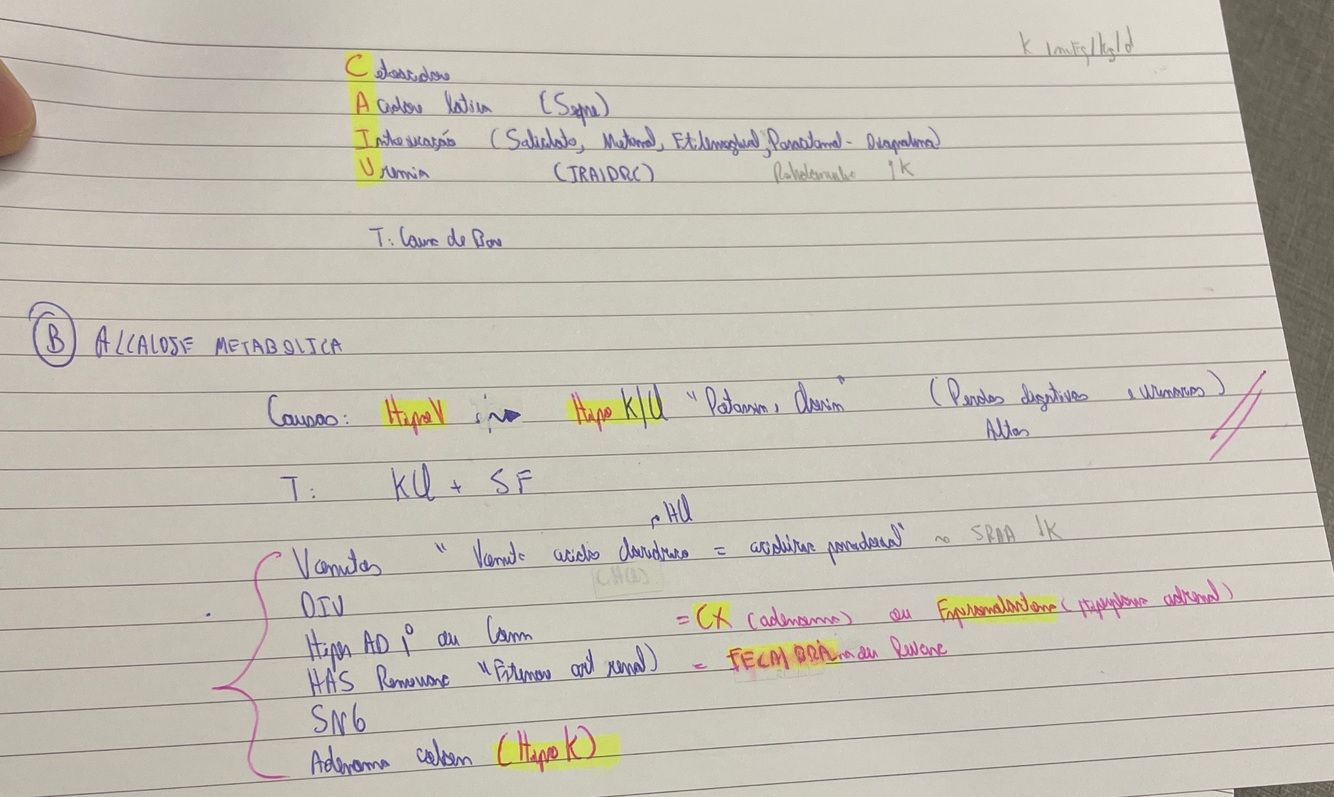 K 1mEq/kg/d
Cetoacidose
Acidose latica (Sepse)
Intoxicação (Salicilato, Metanol, Etilenoglicol, Paracetamol -
Uremia (IRA/DRC) ↑K
T: Causa de Base
B ALCALOSE METABOLICA
Causas: HipoV Hipo K/Cl " (Perdas digestivas e urinarias)
Altas
T: KCl + SF
HCl
Vomitos "Vomito acido cloridrico = aciduria paradoxal" ~ SRAA ↓K
DIU
Hiper AD 1º ou = CX (adenoma) ou Espironolactona ( adrenal)
HAS Renovasc "Estenose art renal) = IECA/BRA ou
SNG
Adenoma (Hipo K)